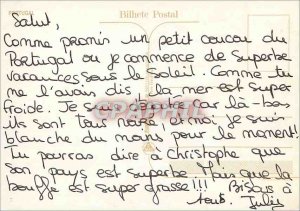 Bilhete Postal
Salut,
Comme promis un petit coucou du
Portugal ou je commence de superbe
vacances sous le soleil. Comme tu
me l'avais dis la mer est super
froide. Je car là-bas
ils sont tous noire, encore je suis
blanche du mais pour le moment!
Tu pourras dire à Christophe que
son pays est superbe. Mais que la
bouffe est super grasse!!! Bisous à
tous. Julie